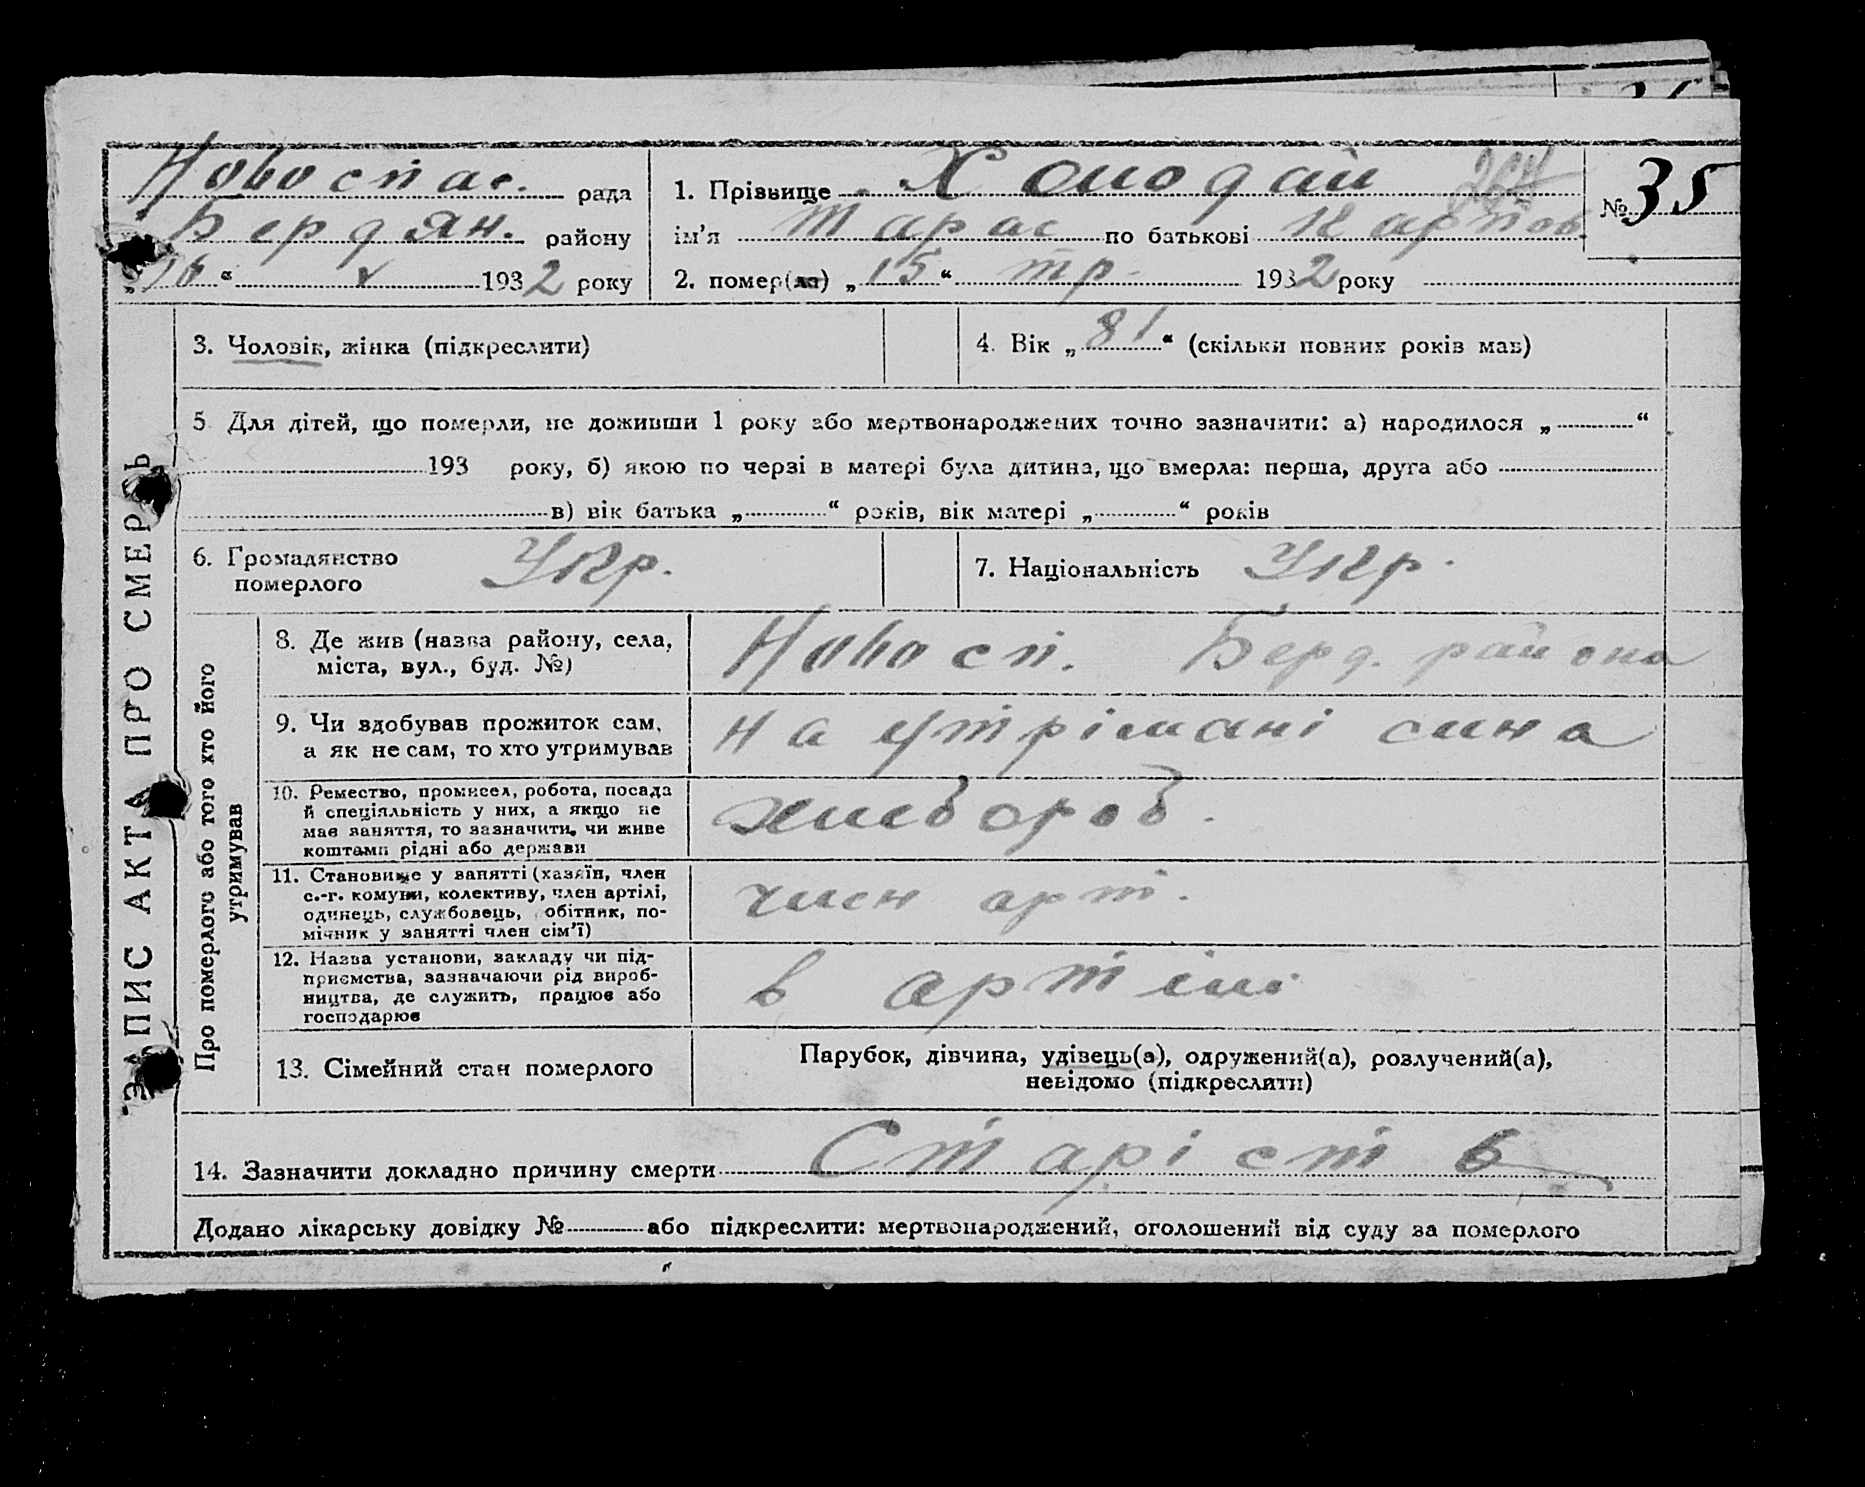 Новоспас. рада
Бердян. району
„16“ V 1932 року
1. Прізвище Холодай
ім’я Тарас по батькові Карпов.
2. помер(ла) „15“ тр. 1932 року
№ 35
ЗАПИС АКТА ПРО СМЕРТЬ
3. Чоловік, жінка (підкреслити)
4. Вік „81“ (скільки повних років мав)
5. Для дітей, що померли, не доживши 1 року або мертвонароджених точно зазначити: а) народилося „ “
193 року, б) якою по черзі в матері була дитина, що вмерла: перша, друга або
в) вік батька „ “ років, вік матері „ “ років
6. Громадянство
померлого Укр.
7. Національність Укр.
Про померлого або того хто його
утримував
8. Де жив (назва району, села,
міста, вул., буд. №)
Новосп. Берд. района
9. Чи здобував прожиток сам,
а як не сам, то хто утримував
на утрімані сина
10. Ремество, промисел, робота, посада
й спеціяльність у них, а якщо не
мав заняття, то зазначити, чи живе
коштами рідні або держави
хлібороб.
11. Становище у занятті (хазяїн, член
с.-г. комуни, колективу, член артілі,
одинець, службовець, робітник, по-
мічник у занятті член сім’ї)
член арт.
12. Назва установи, закладу чи під-
приємства, зазначаючи рід вироб-
ництва, де служить, працює або
господарює
в артілі
13. Сімейний стан померлого
Парубок, дівчина, удівець(а), одружений(а), розлучений(а),
невідомо (підкреслити)
14. Зазначити докладно причину смерти Старість
Додано лікарську довідку № або підкреслити: мертвонароджений, оголошений від суду за померлого